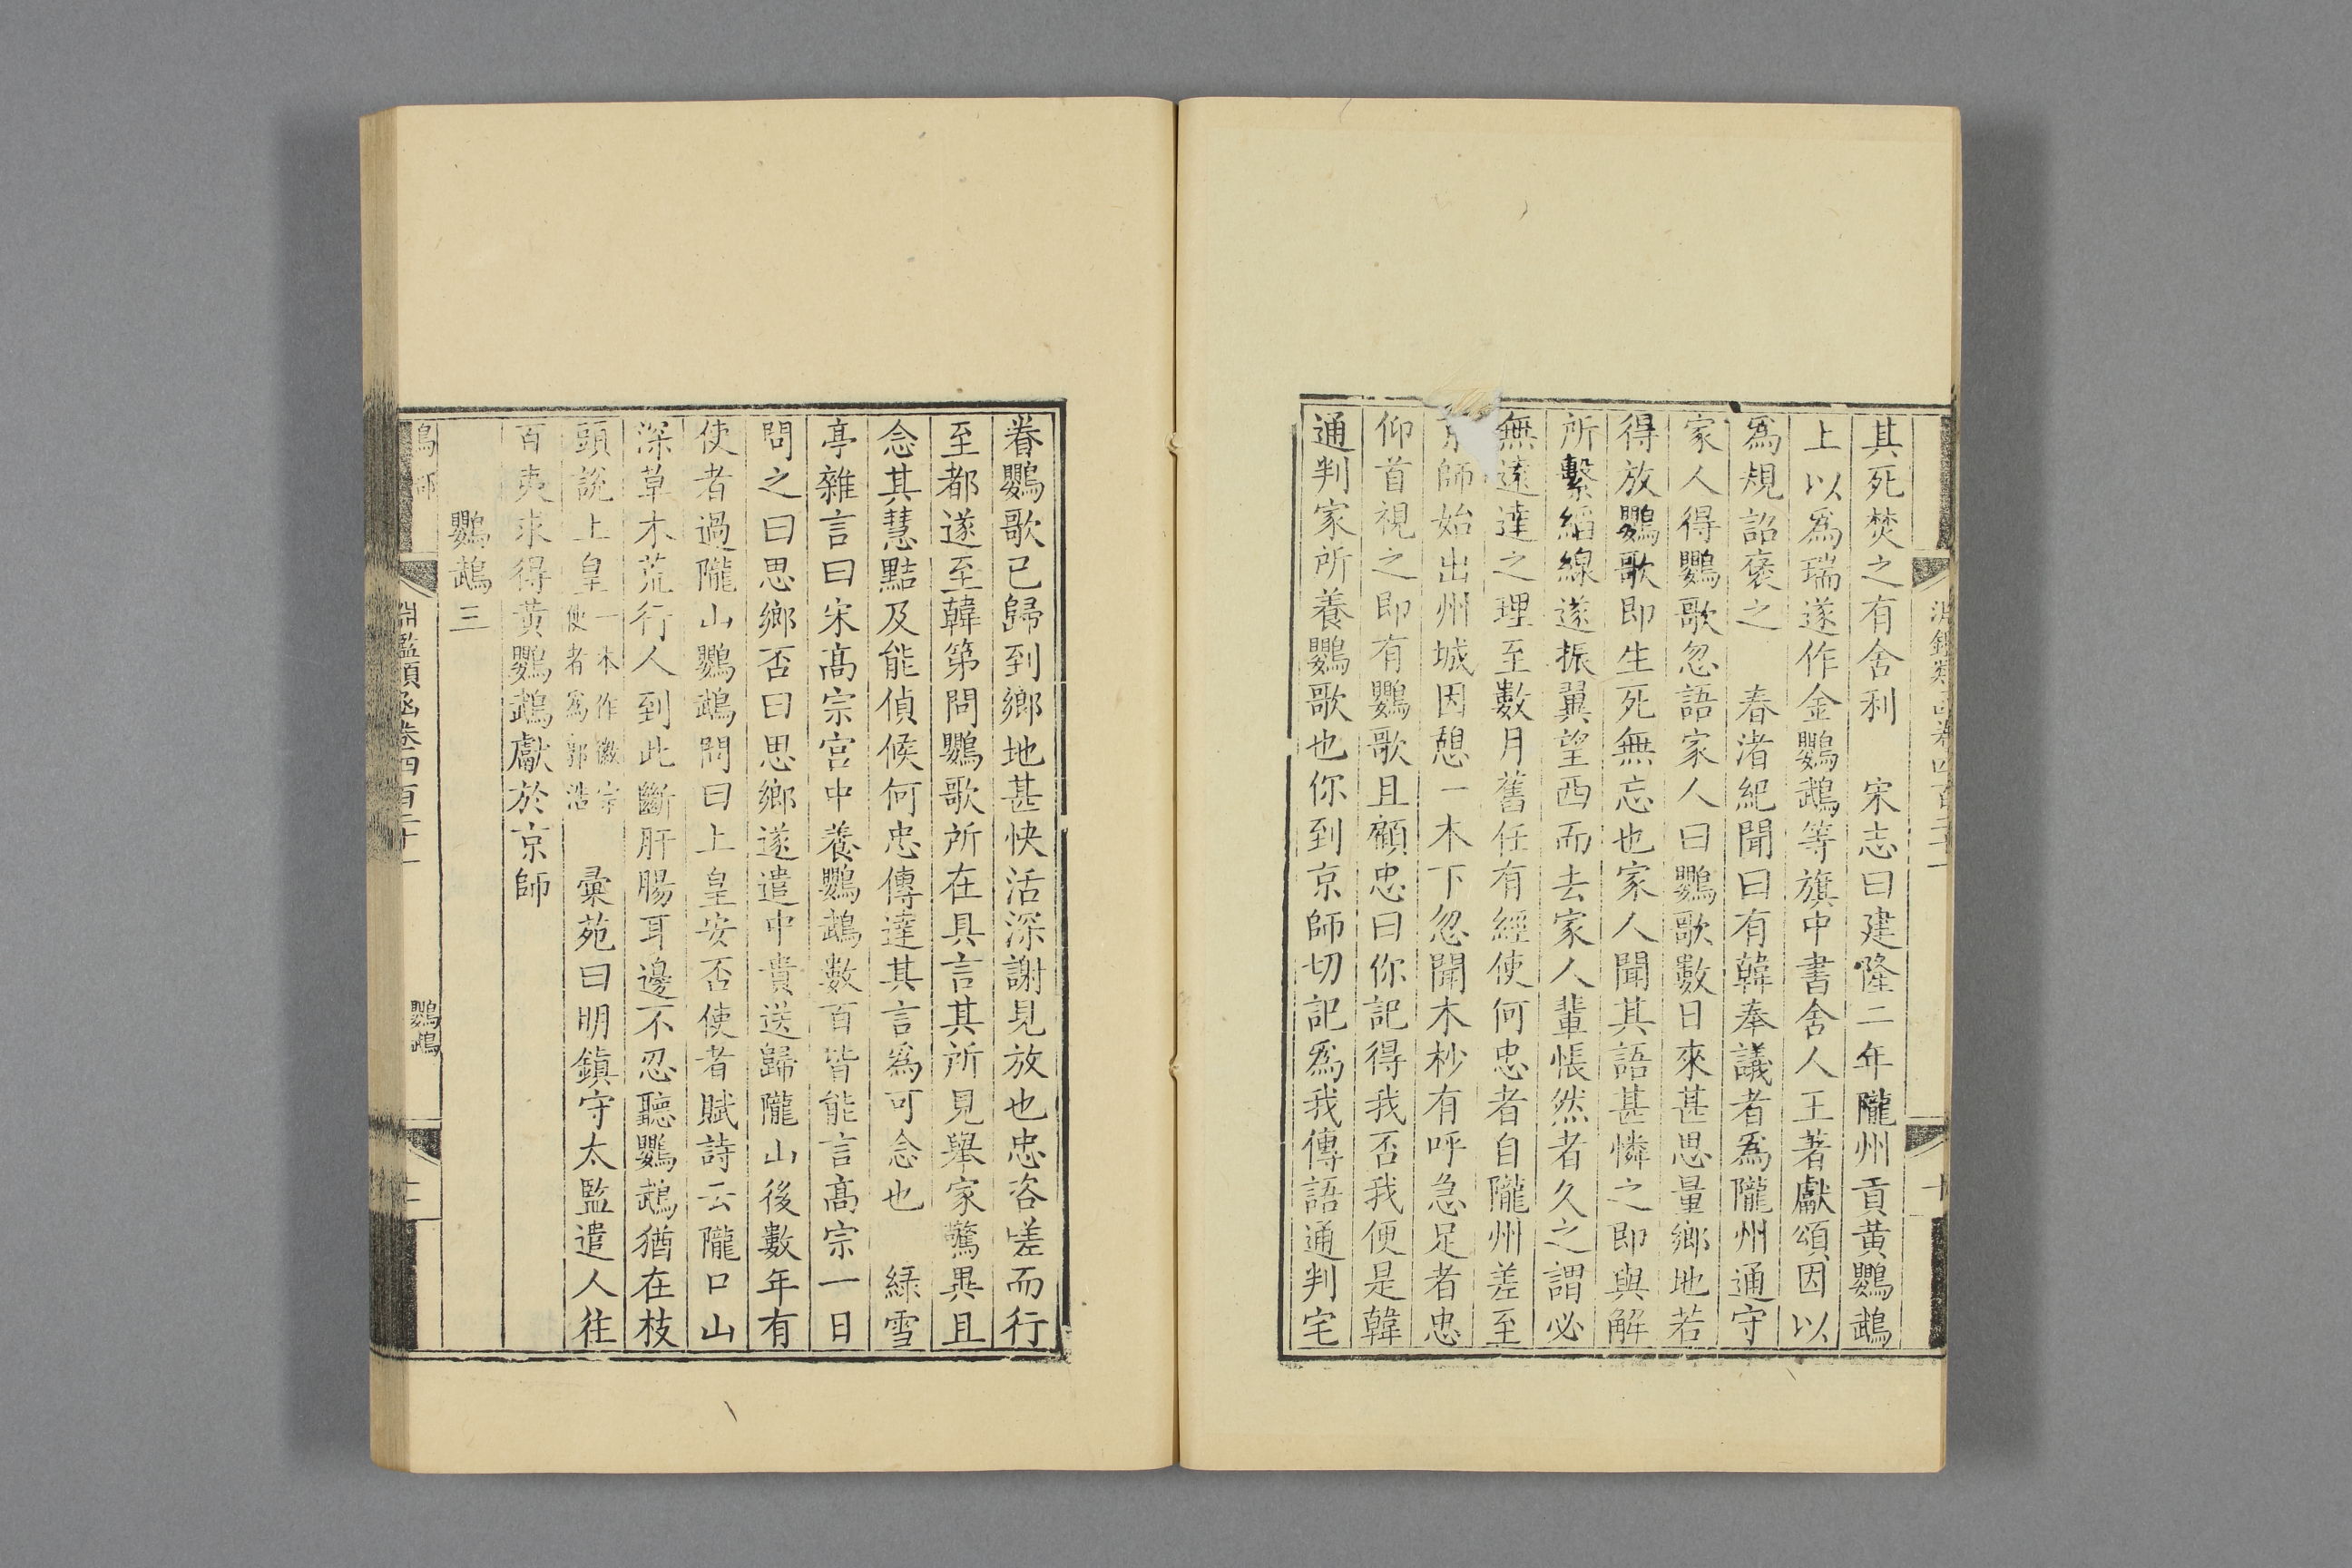 其死焚之有舍利　宋志曰建隆二年隴州貢黃鸚鵡
上以爲瑞遂作金鸚鵡等旗中書舍人王著獻頌因以
爲規詔褒之　春渚紀聞曰有韓奉議者爲隴州通守
家人得鸚歌忽語家人曰鸚歌數日來甚思量鄉地若
得放鸚歌即生死無忘也家人聞其語甚憐之即與解
所繫縚線遂振翼望西而去家人輩悵然者久之謂必
無遠達之理至數月舊任有經使何忠者自隴州差至
京師始出州城因憩一木下忽聞木杪有呼急足者忠
仰首視之即有鸚歌且顧忠曰你記得我否我便是韓
通判家所養鸚歌也你到京師切記爲我傳語通判宅
眷鸚歌已歸到鄉地甚快活深謝見放也忠咨嗟而行
至都遂至韓第問鸚歌所在具言其所見舉家驚異且
念其慧黠及能偵候何忠傳達其言爲可念也　綠雪
亭雜言曰宋高宗宮中養鸚鵡數百皆能言高宗一日
問之曰思鄉否曰思鄉遂遣中貴送歸隴山後數年有
使者過隴山鸚鵡問曰上皇安否使者賦詩云隴口山
深草木荒行人到此斷肝腸耳邊不忍聽鸚鵡猶在枝
頭說上皇一本作徽宗使者爲郭浩　彙苑曰明鎮守太監遣人往
百夷求得黃鸚鵡獻於京師
鸚鵡三
鳥部　淵鑑類函卷四百二十一　鸚鵡